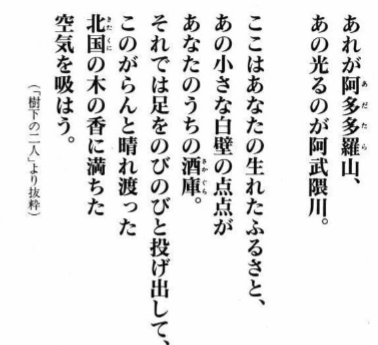 あれが阿多多羅山、
あの光るのが阿武隈川。
ここはあなたの生れたふるさと、
あの小さな白壁の点点が
あなたのうちの酒庫。
それでは足をのびのびと投げ出して、
このがらんと晴れ渡った
北国の木の香に満ちた
空気を吸はう。
(「樹下の二人」より抜粋)